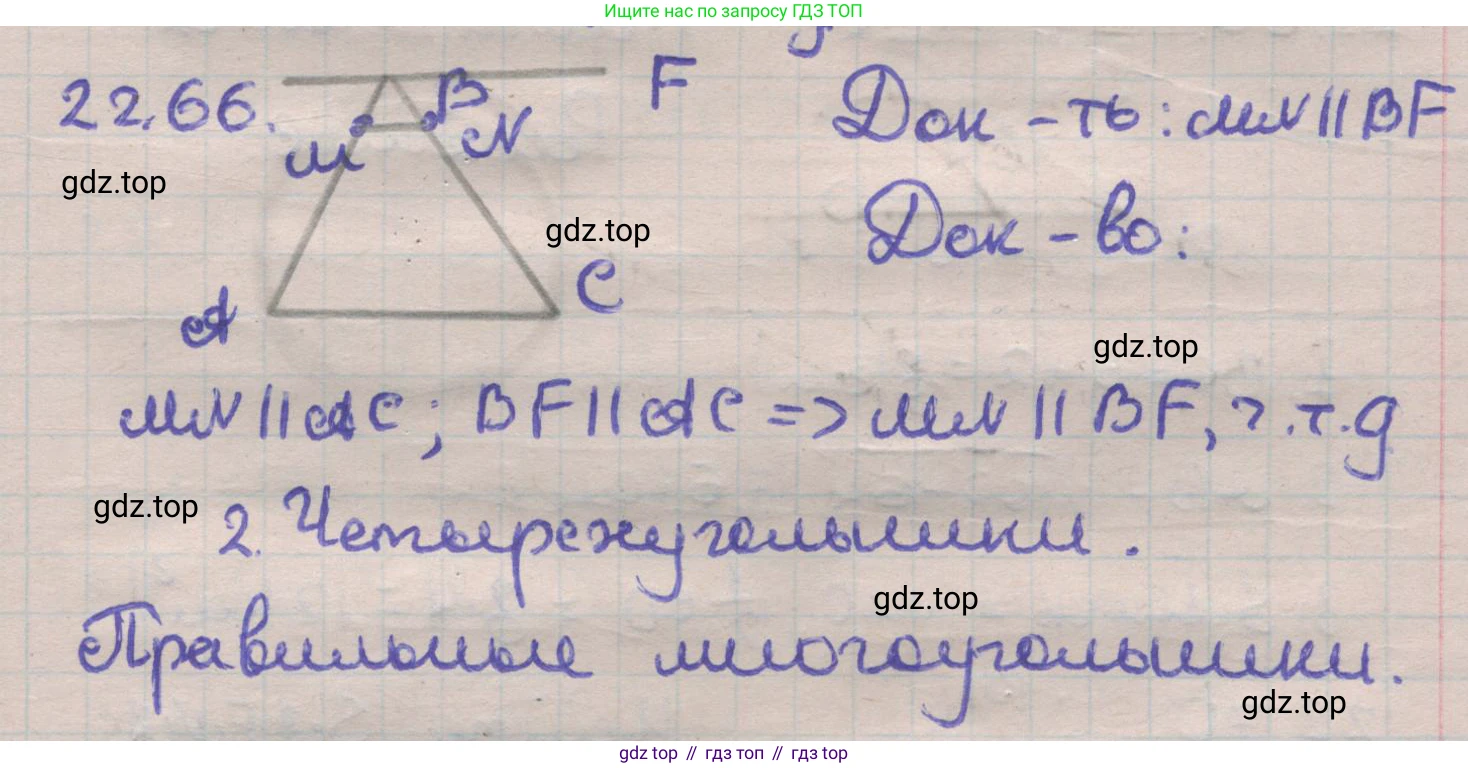 Ищите нас по запросу ГДЗ ТОП
22.66.
B
F
Док-ть: MN || BF
M
N
gdz.top
Док-во:
gdz.top
C
A
gdz.top
MN || AC; BF || AC => MN || BF, ч.т.д
gdz.top
2. Четырехугольники.
gdz.top
Правильные многоугольники.
gdz.top
gdz top // гдз топ // гдз top